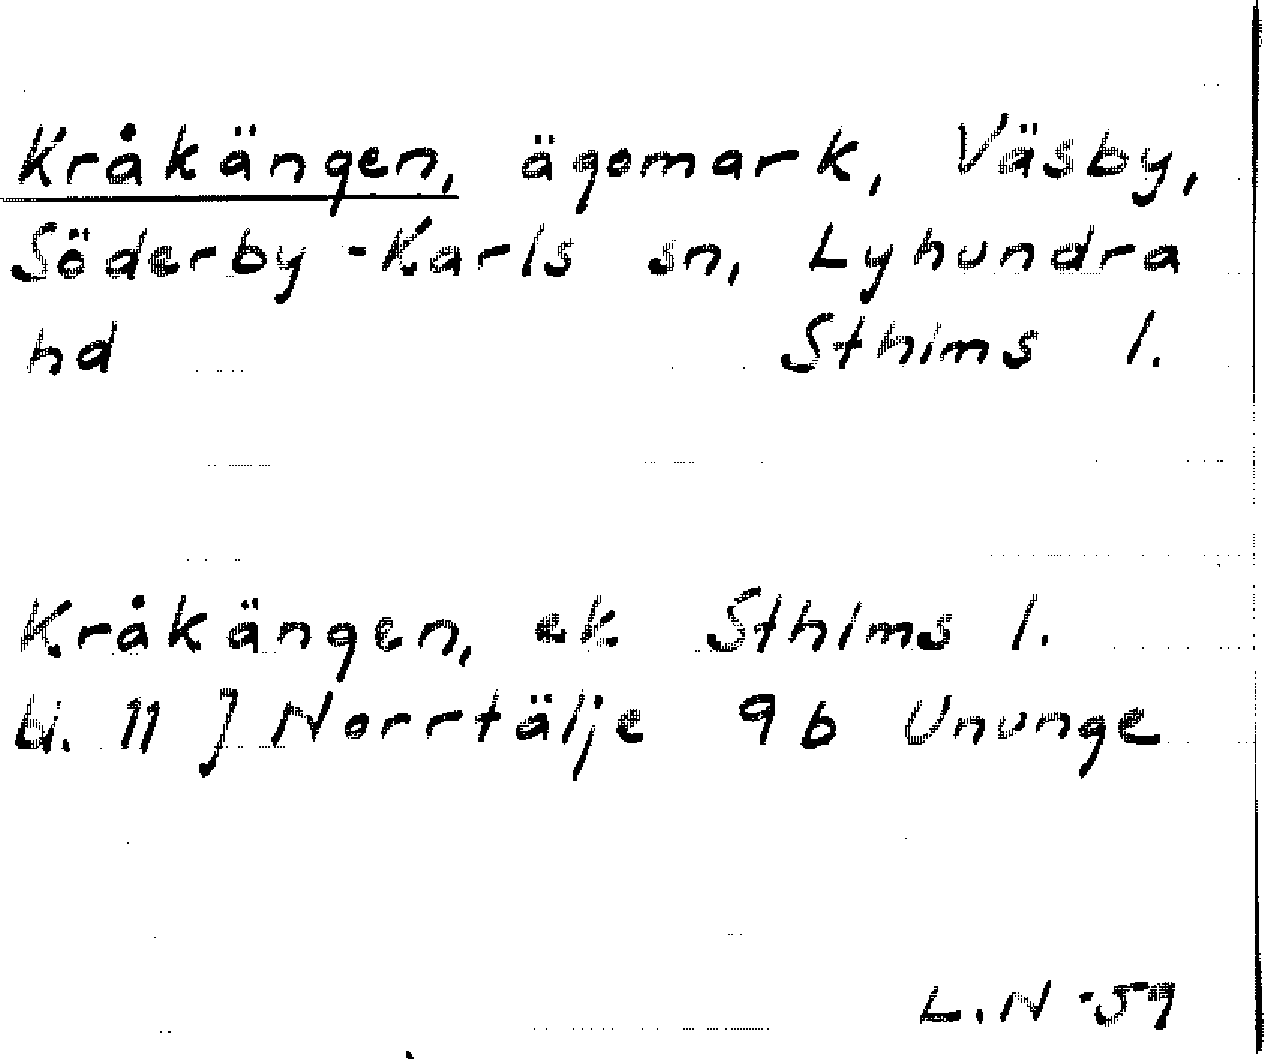 Kråkängen, ägomark, Väsby,
Söderby-Karls sn, Lyhundra
hd Sthlms l.
Kråkängen, ek Sthlms l.
bl. 11 J Norrtälje 9b Ununge
L.N -59